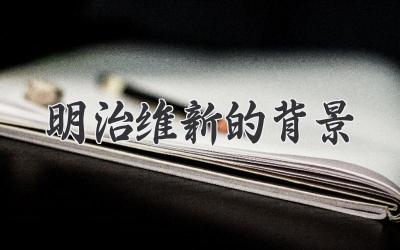 明治维新的背景